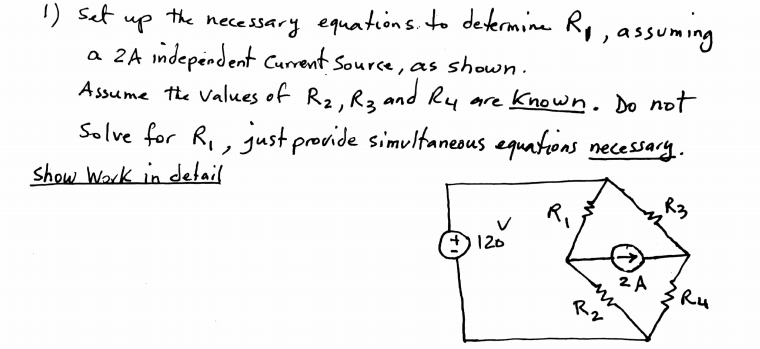 1) Set up the necessary equations. to determine R1, assuming
a 2A independent Current Source, as shown.
Assume the values of R2, R3 and R4 are Known. Do not
Solve for R1, just provide simultaneous equations necessary.
Show Work in detail
R1
R3
+
-
120 V
2 A
R2
R4